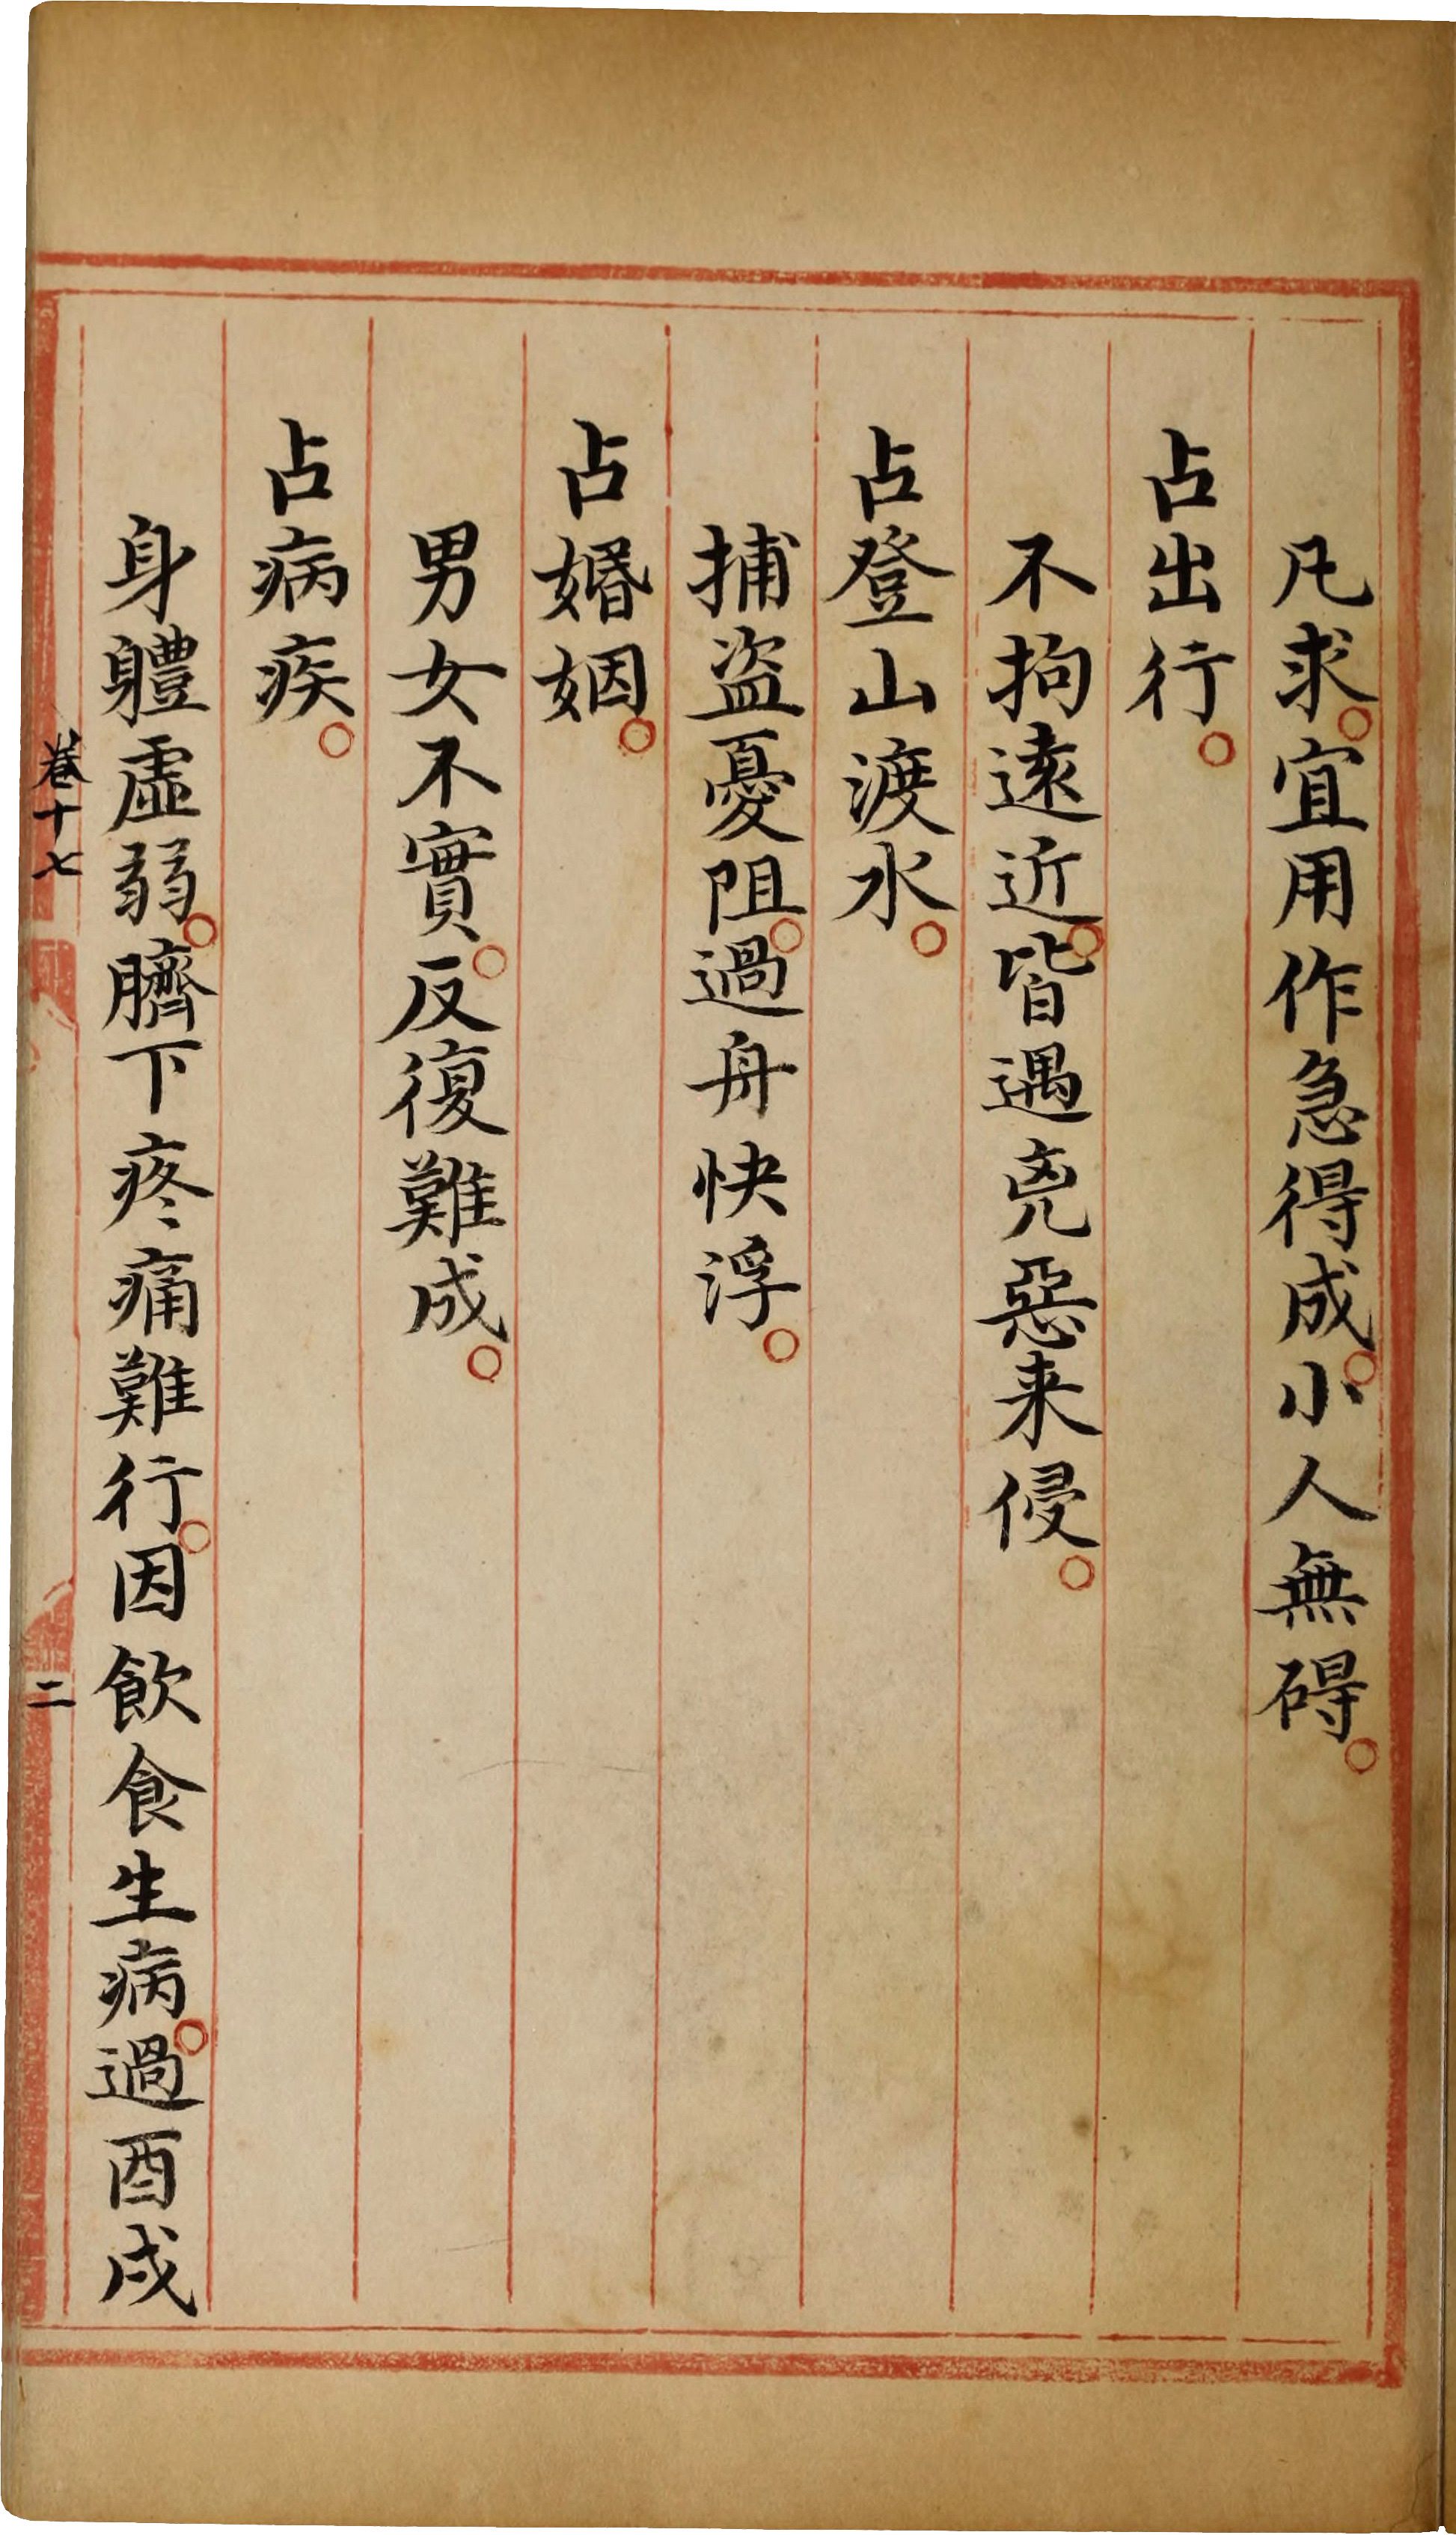 凡求。宜用作急得成。小人無碍。
占出行。
不拘遠近。皆遇兇惡来侵。
占登山渡水。
捕盗憂阻。過舟快浮。
占婚姻。
男女不實。反復難成。
占病疾。
身軆虛弱。臍下疼痛難行。因飲食生病。過酉戌
卷十七
二